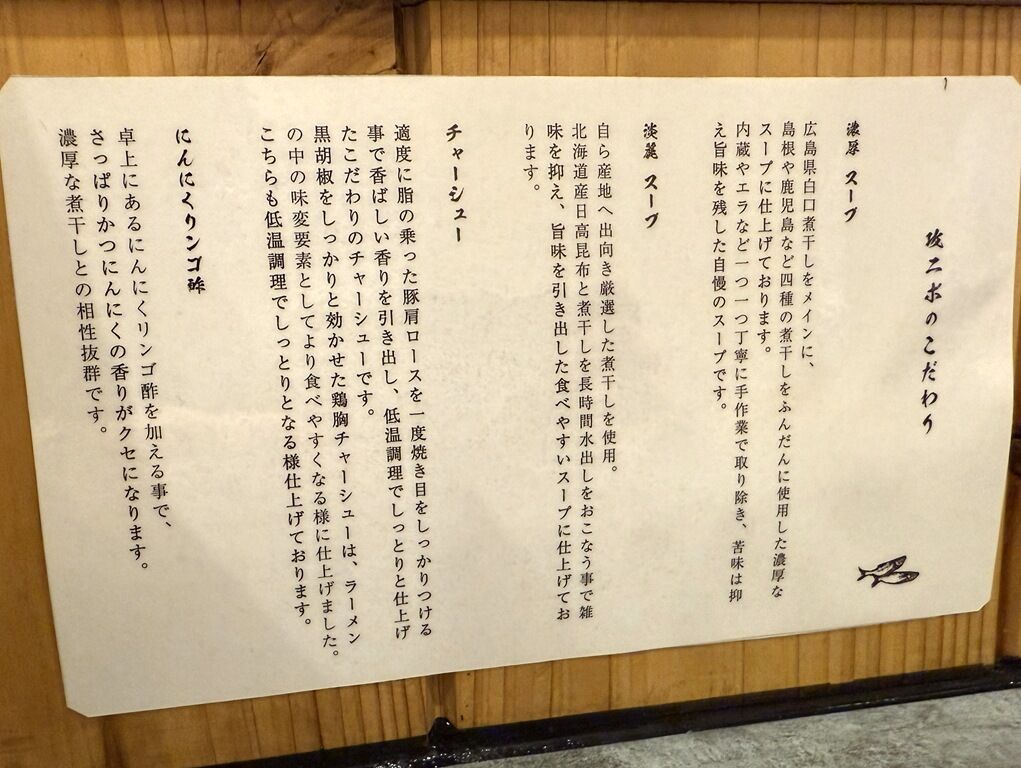 攻ニボのこだわり
濃厚 スープ
広島県白口煮干しをメインに、
島根や鹿児島など四種の煮干しをふんだんに使用した濃厚な
スープに仕上げております。
内蔵やエラなど一つ一つ丁寧に手作業で取り除き、苦味は抑
え旨味を残した自慢のスープです。
淡麗 スープ
自ら産地へ出向き厳選した煮干しを使用。
北海道産日高昆布と煮干しを長時間水出しをおこなう事で雑
味を抑え、旨味を引き出した食べやすいスープに仕上げてお
ります。
チャーシュー
適度に脂の乗った豚肩ロースを一度焼き目をしっかりつける
事で香ばしい香りを引き出し、低温調理でしっとりと仕上げ
たこだわりのチャーシューです。
黒胡椒をしっかりと効かせた鶏胸チャーシューは、ラーメン
の中の味変要素としてより食べやすくなる様に仕上げました。
こちらも低温調理でしっとりとなる様仕上げております。
にんにくリンゴ酢
卓上にあるにんにくリンゴ酢を加える事で、
さっぱりかつにんにくの香りがクセになります。
濃厚な煮干しとの相性抜群です。